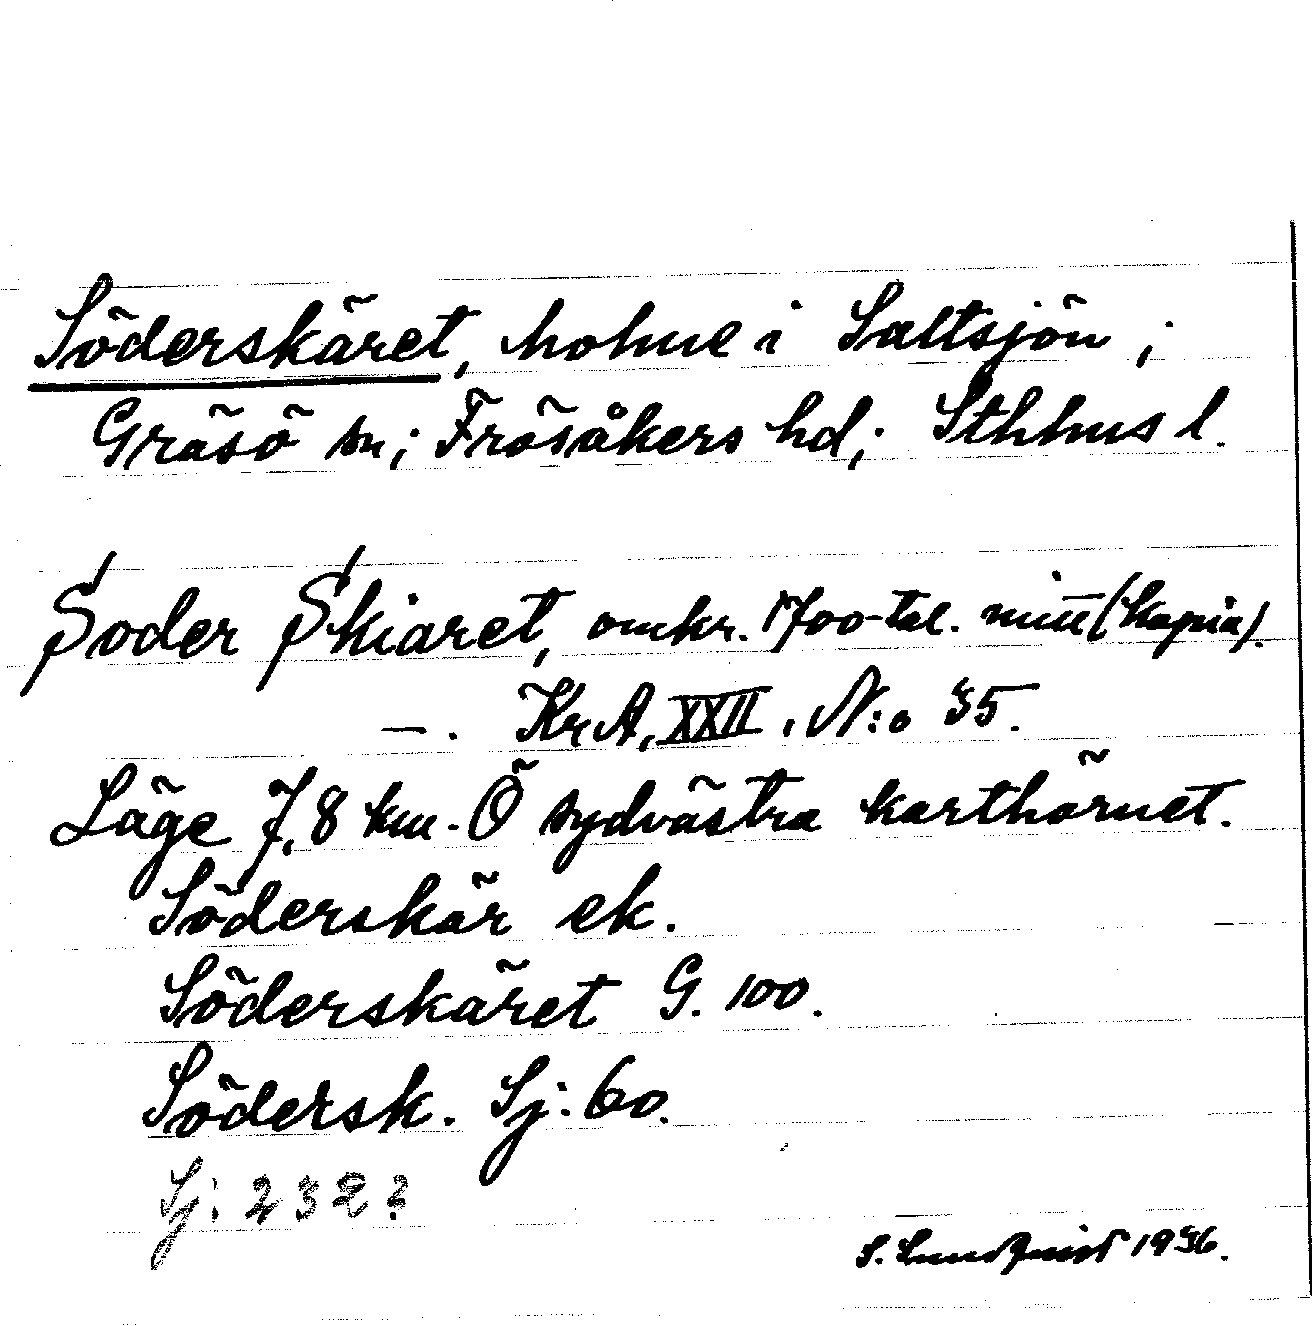 Söderskäret, holme i Saltsjön;
Gräsö sn; Frösåkers hd; Sthlms l.
Soder Skiaret, omkr. 1700-tal. mitt (kopia).
—. Kr A, XXII. N:o 35.
Läge 7,8 km. Ö sydvästra karthörnet.
Söderskär ek.
Söderskäret G. 100.
Södersk. Sj: 60.
Sj: 232?
S. Lundquist 1936.